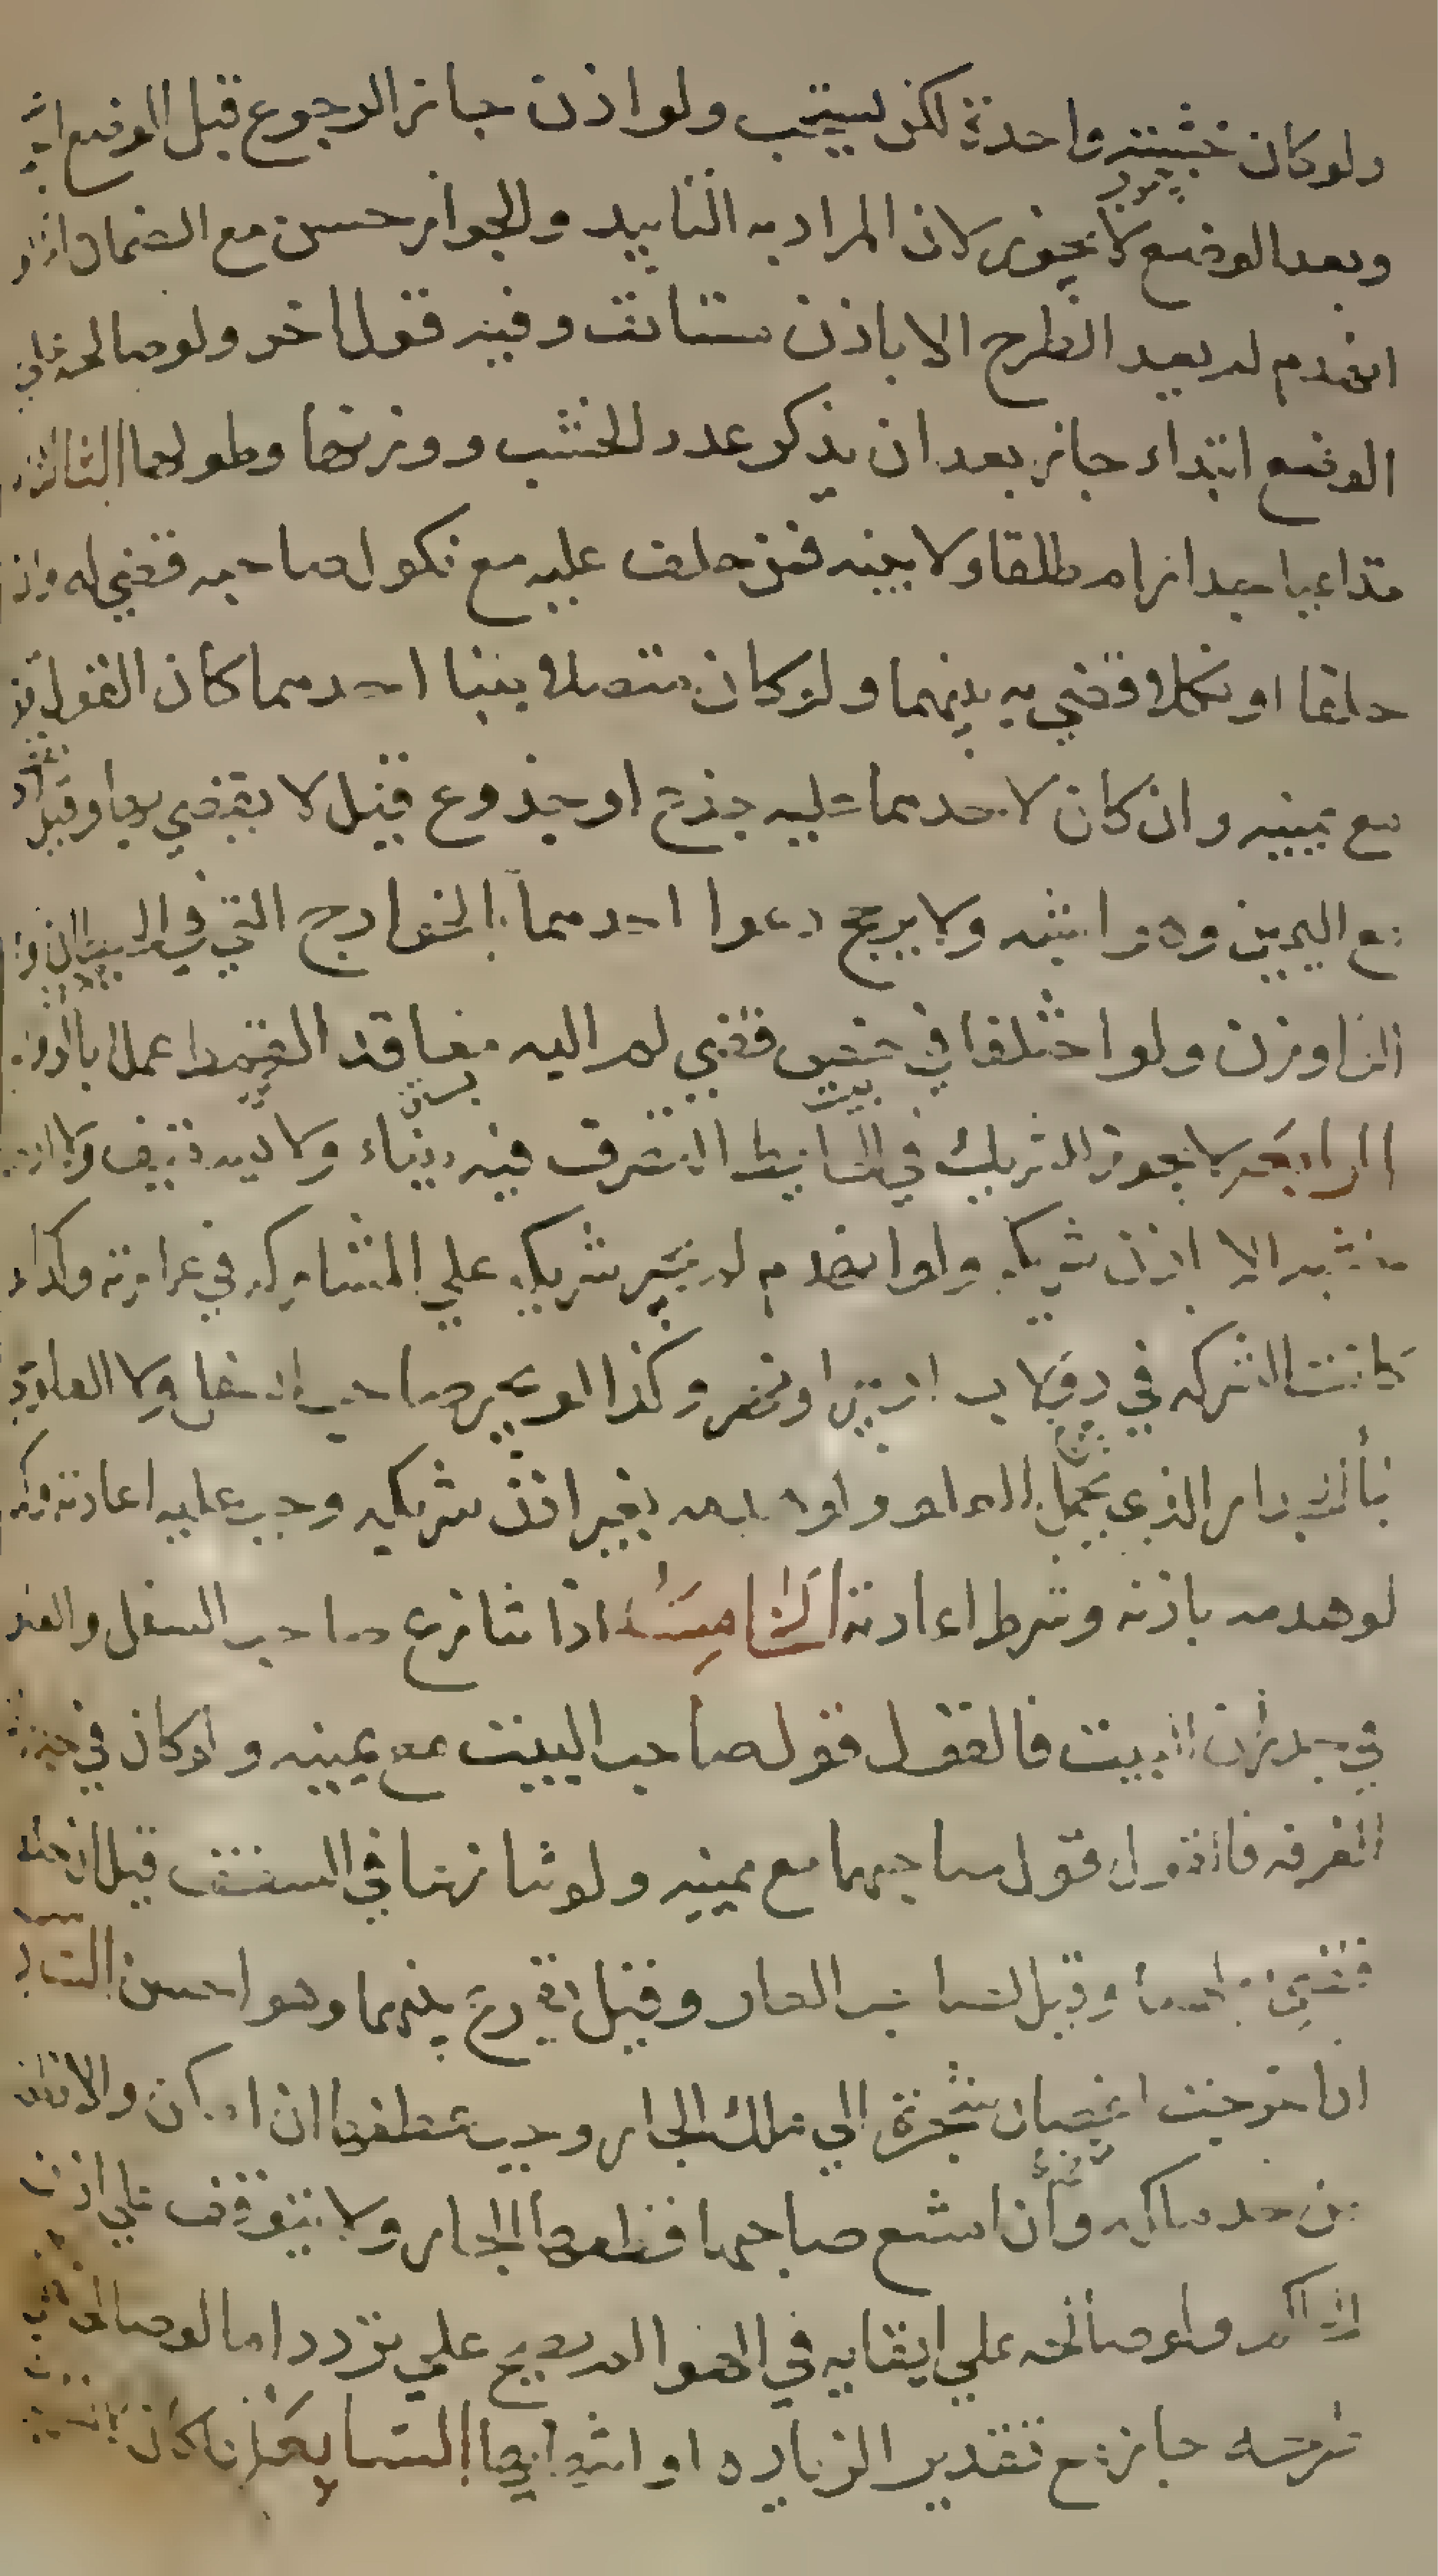 ولو كان خشبته واحدة لكن يستحب ولو اذن جاز الرجوع قبل الوضع
وبعد الوضع لا يجوز لان المراد به التابيد والجواز حسن مع الضمان اما لو
انهدم لم يعد الطرح الا باذن مستانف وفيه قول اخر ولو صالحه على
الوضع ابتداء جاز بعد ان يذكر عدد الخشب ووزنها وطولها الثالثة
تداعيا جدارا مطلقا ولا بينه فمن حلف عليه مع نكول صاحبه قضي له وان
حلفا او نكلا قضي به بينهما ولو كان متصلا ببنا احدهما كان القول قو
مع يمينه وان كان لاحدهما عليه جذع او جذوع قيل لا يقضي بها وقيل
مع اليمين وهو اشبه ولا يرجح دعوا احدهما بالخوارج التي في الحيطان ولا
الروازن ولو اختلفا في خص قضي لمن اليه معاقد القمط عملا بالرواية
الرابعه لا يجوز للشريك في الحايط التصرف فيه ببناء ولا تسقيف ولا
خشبه الا باذن شريكه ولو انهدم لم يجبر شريكه علي المشاركه في عمارته وكذا لو
كانت الشركه في دولاب او بير او نهر وكذا لا يجبر صاحب السفل ولا العلو
بناء الجدار الذي يحمل العلو ولو هدمه بغير اذن شريكه وجب عليه اعادته وكذا
لو هدمه باذنه وشرط اعادته الخامسة اذا تنازع صاحب السفل والعلو
في جدران البيت فالقول قول صاحب البيت مع يمينه ولو كان في جدران
الغرفه فالقول قول صاحبها مع يمينه ولو تنازعا في السقف قيل ان حلفا
قضي به لهما وقيل لصاحب العلو وقيل يقرع بينهما وهو احسن السادسة
اذا خرجت اغصان شجرة الي ملك الجار وجب عطفها ان امكن والا قطعت
من حد ملكه وان امتنع صاحبها قطعها الجار ولا يتوقف علي اذن
الحاكم ولو صالحه علي ابقايه في الهوا لم يصح علي تردد اما لو صالحه
طرحه جاز مع تقدير الزياده او انتهايها السابعة اذا كان